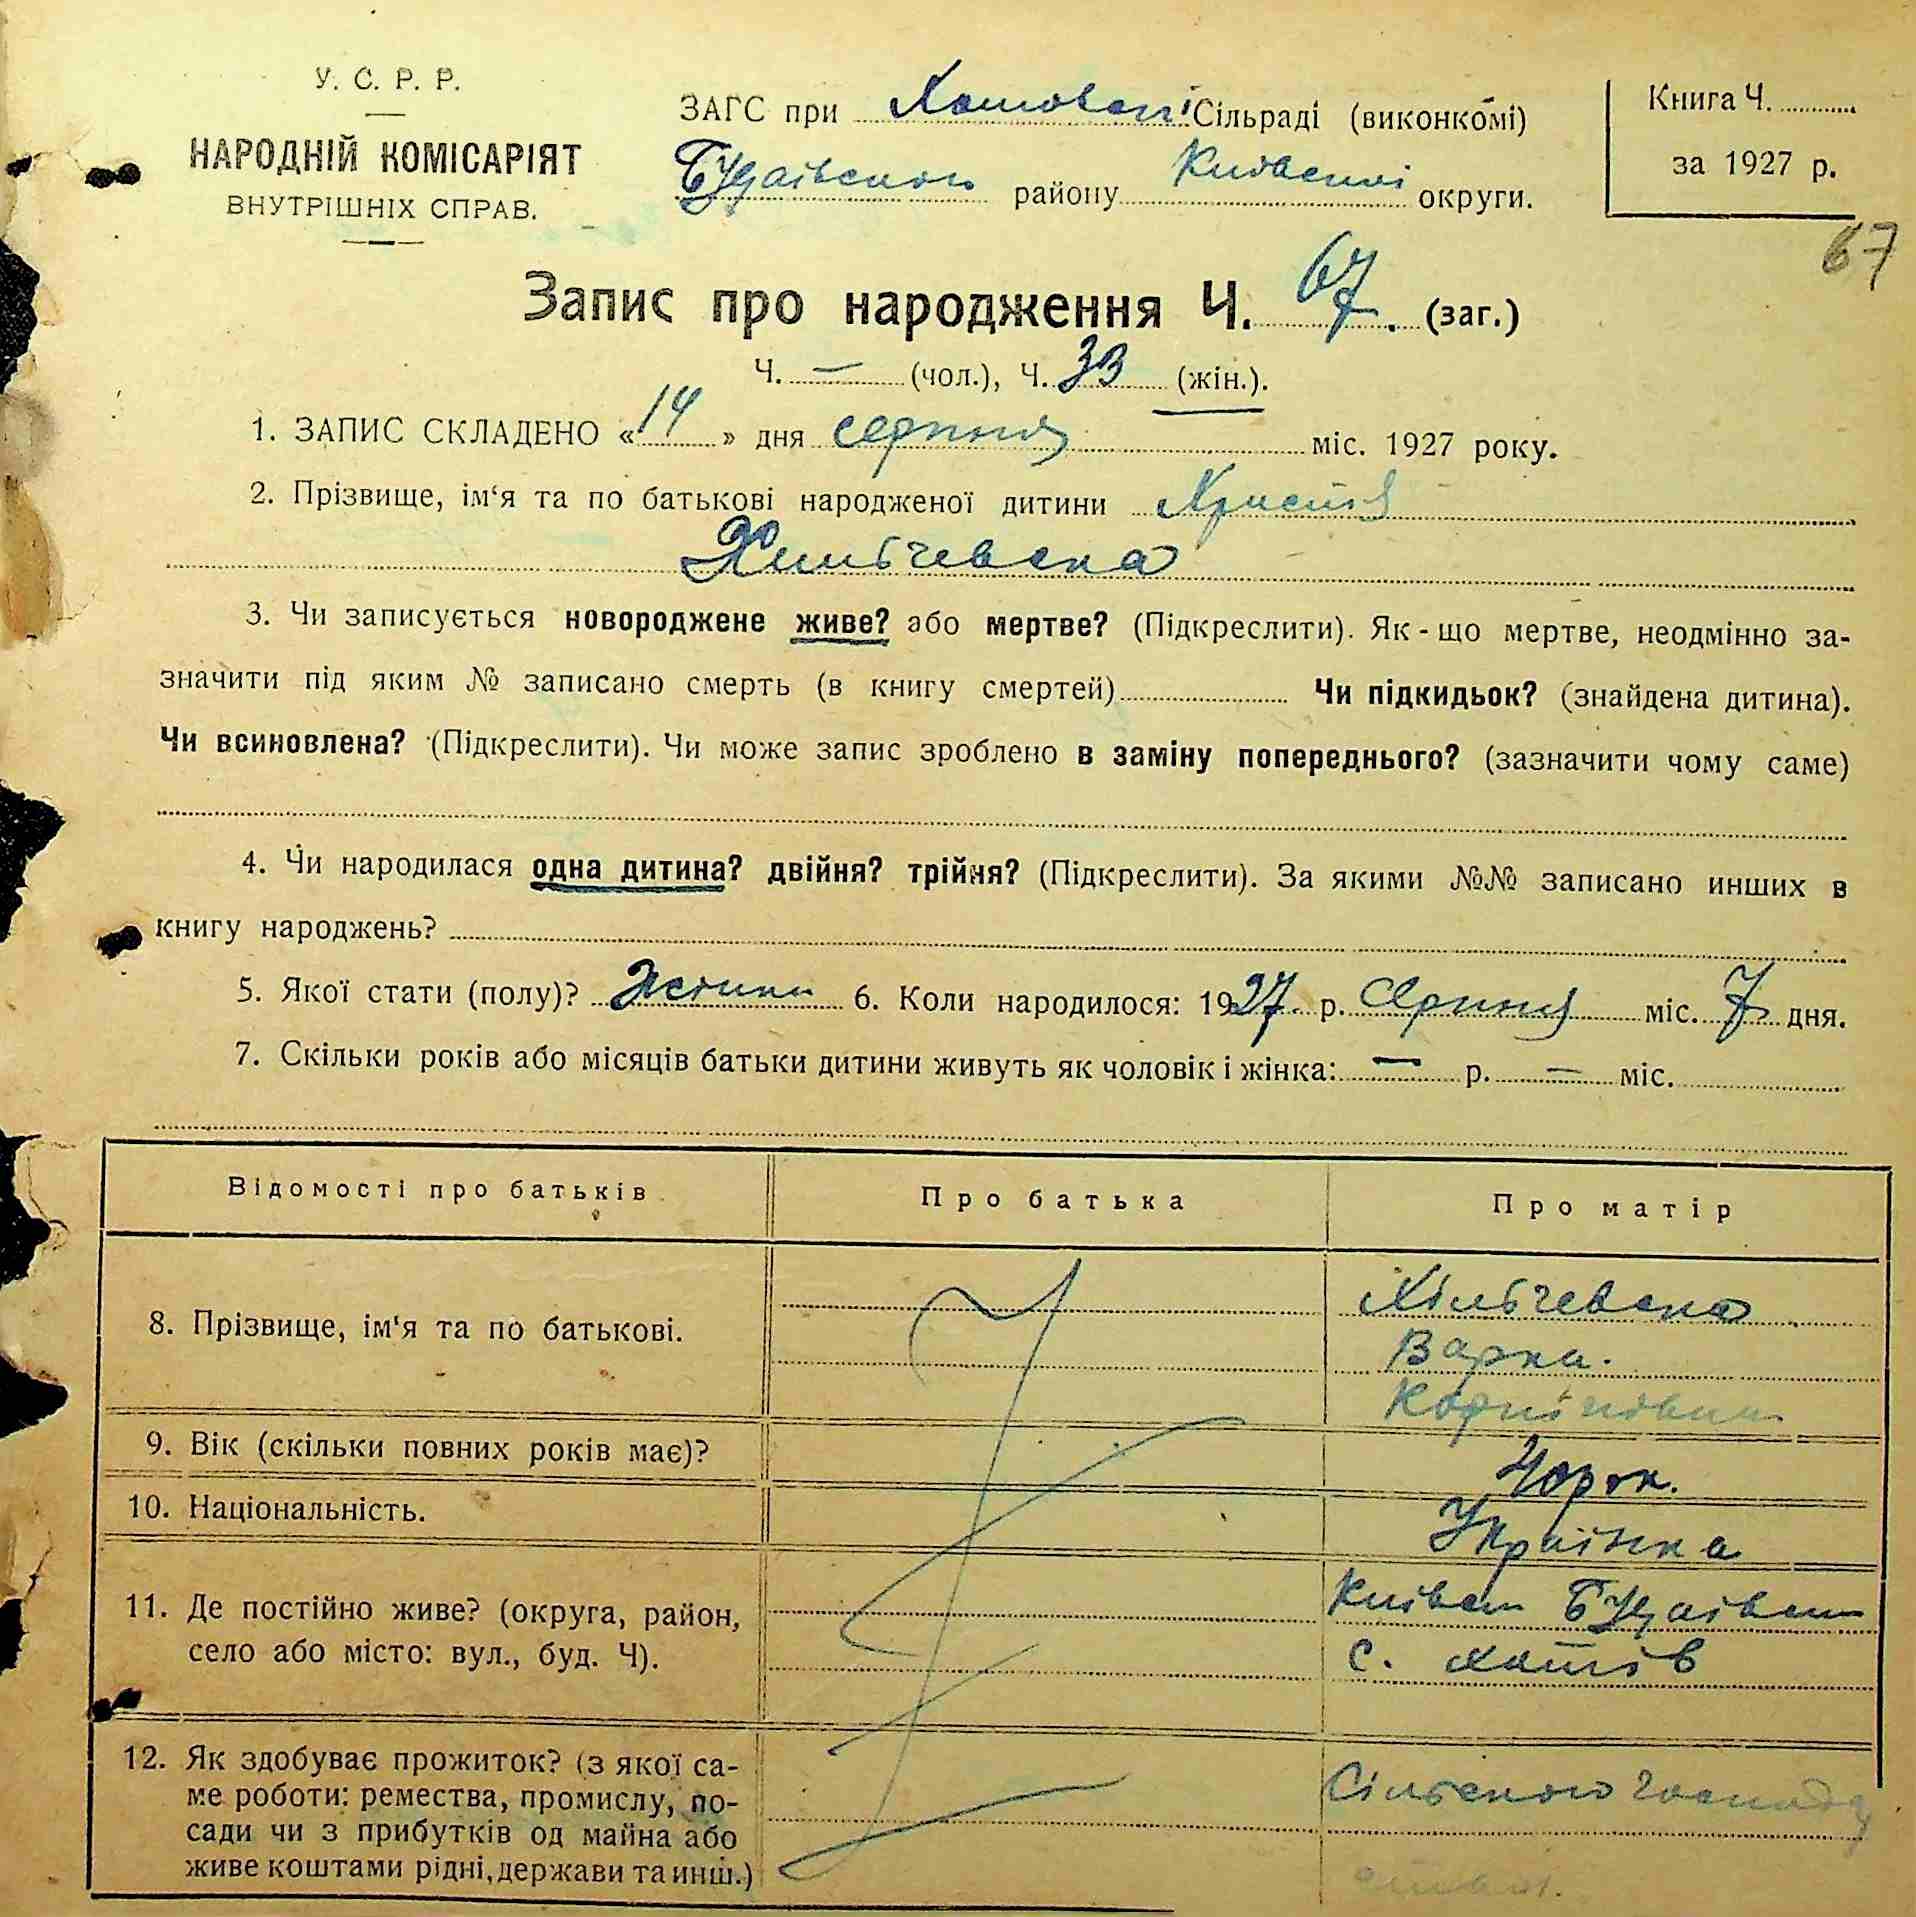 У. С. Р. Р.
НАРОДНІЙ КОМІСАРІЯТ
ВНУТРІШНІХ СПРАВ.
ЗАГС при Хотовські Сільраді (виконкомі)
Будаївського району Київської округи.
Книга Ч.
за 1927 р.
67
Запис про народження Ч. 67. (заг.)
Ч. — (чол.), Ч. 33 (жін.).
1. ЗАПИС СКЛАДЕНО «14» дня серпня міс. 1927 року.
2. Прізвище, ім‘я та по батькові народженої дитини Христя
Хильчевска
3. Чи записується новороджене живе? або мертве? (Підкреслити). Як-що мертве, неодмінно за-
значити під яким № записано смерть (в книгу смертей) Чи підкидьок? (знайдена дитина).
Чи всиновлена? (Підкреслити). Чи може запис зроблено в заміну попереднього? (зазначити чому саме)
4. Чи народилася одна дитина? двійня? трійня? (Підкреслити). За якими №№ записано инших в
книгу народжень?
5. Якої стати (полу)? 6. Коли народилося: 1927 р. Серпня міс. 7 дня.
7. Скільки років або місяців батьки дитини живуть як чоловік і жінка: — р. — міс.
Відомості про батьків Про батька Про матір
8. Прізвище, ім‘я та по батькові.
Хільчевска
Варка.
9. Вік (скільки повних років має)?
10. Національність.
Українка
11. Де постійно живе? (округа, район,
село або місто: вул., буд. Ч).
с. Хотів
12. Як здобуває прожиток? (з якої са-
ме роботи: ремества, промислу, по-
сади чи з прибутків од майна або
живе коштами рідні, держави та инш.)
Сільского господ